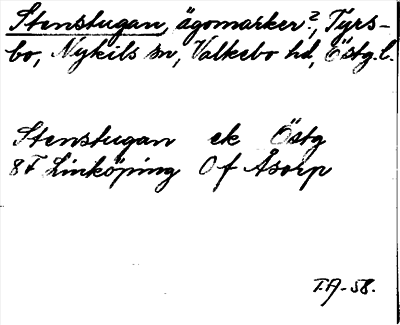 Stenstugan, ägomarker?, Tyrs-
bo, Nykils sn, Valkebo hd, Östg.l.
Stenstugan ek Östg
8F Linköping Of Åsorp
T.A-58.